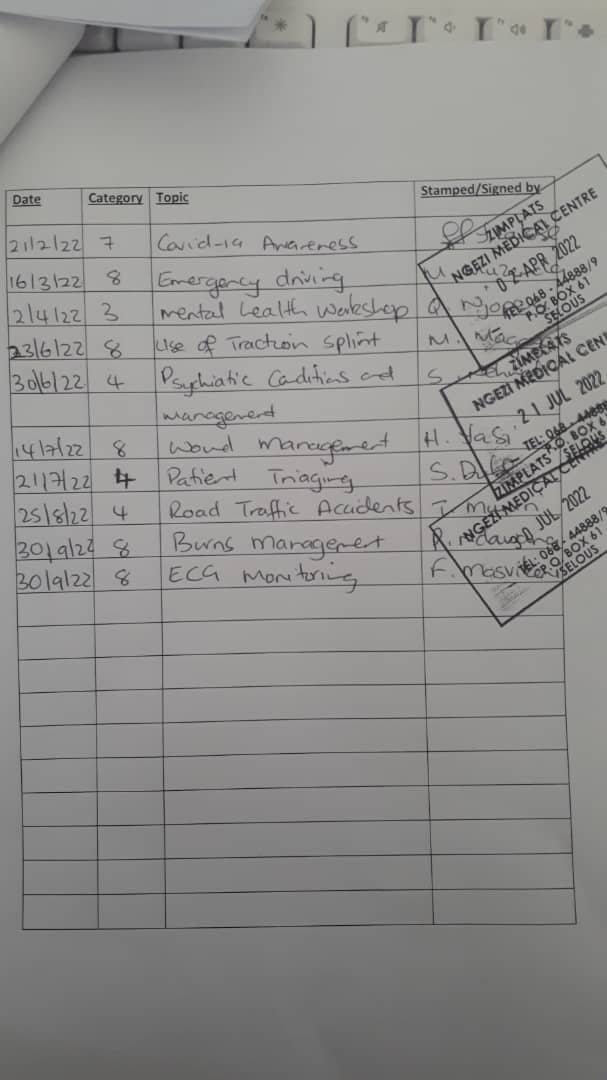 Date Category Topic Stamped/Signed by
21/2/22 7 Covid-19 Awareness
16/3/22 8 Emergency driving M.
2/4/22 3 mental health workshop
23/6/22 8 Use of Traction splint M.
30/6/22 4 Psychiatic Conditions and S.
management
14/7/22 8 Wound management H.
21/7/22 4 Patient Triaging S.
25/8/22 4 Road Traffic Accidents T.
30/9/22 8 Burns management
30/9/22 8 ECG Monitoring F.
ZIMPLATS
NGEZI MEDICAL CENTRE
02 APR 2022
TEL: 068 - 44888/9
P.O. BOX 61
SELOUS
ZIMPLATS
NGEZI MEDICAL CEN
21 JUL 2022
TEL: 068 - 4488
P.O. BOX 6
SELOUS
ZIMPLATS
NGEZI MEDICAL CENTRE
JUL 2022
TEL: 068 - 44888/9
P.O. BOX 61
SELOUS